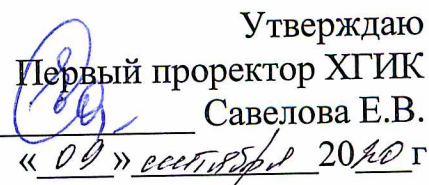 Утверждаю
Первый проректор ХГИК
Савелова Е.В.
«09» сентября 2020г